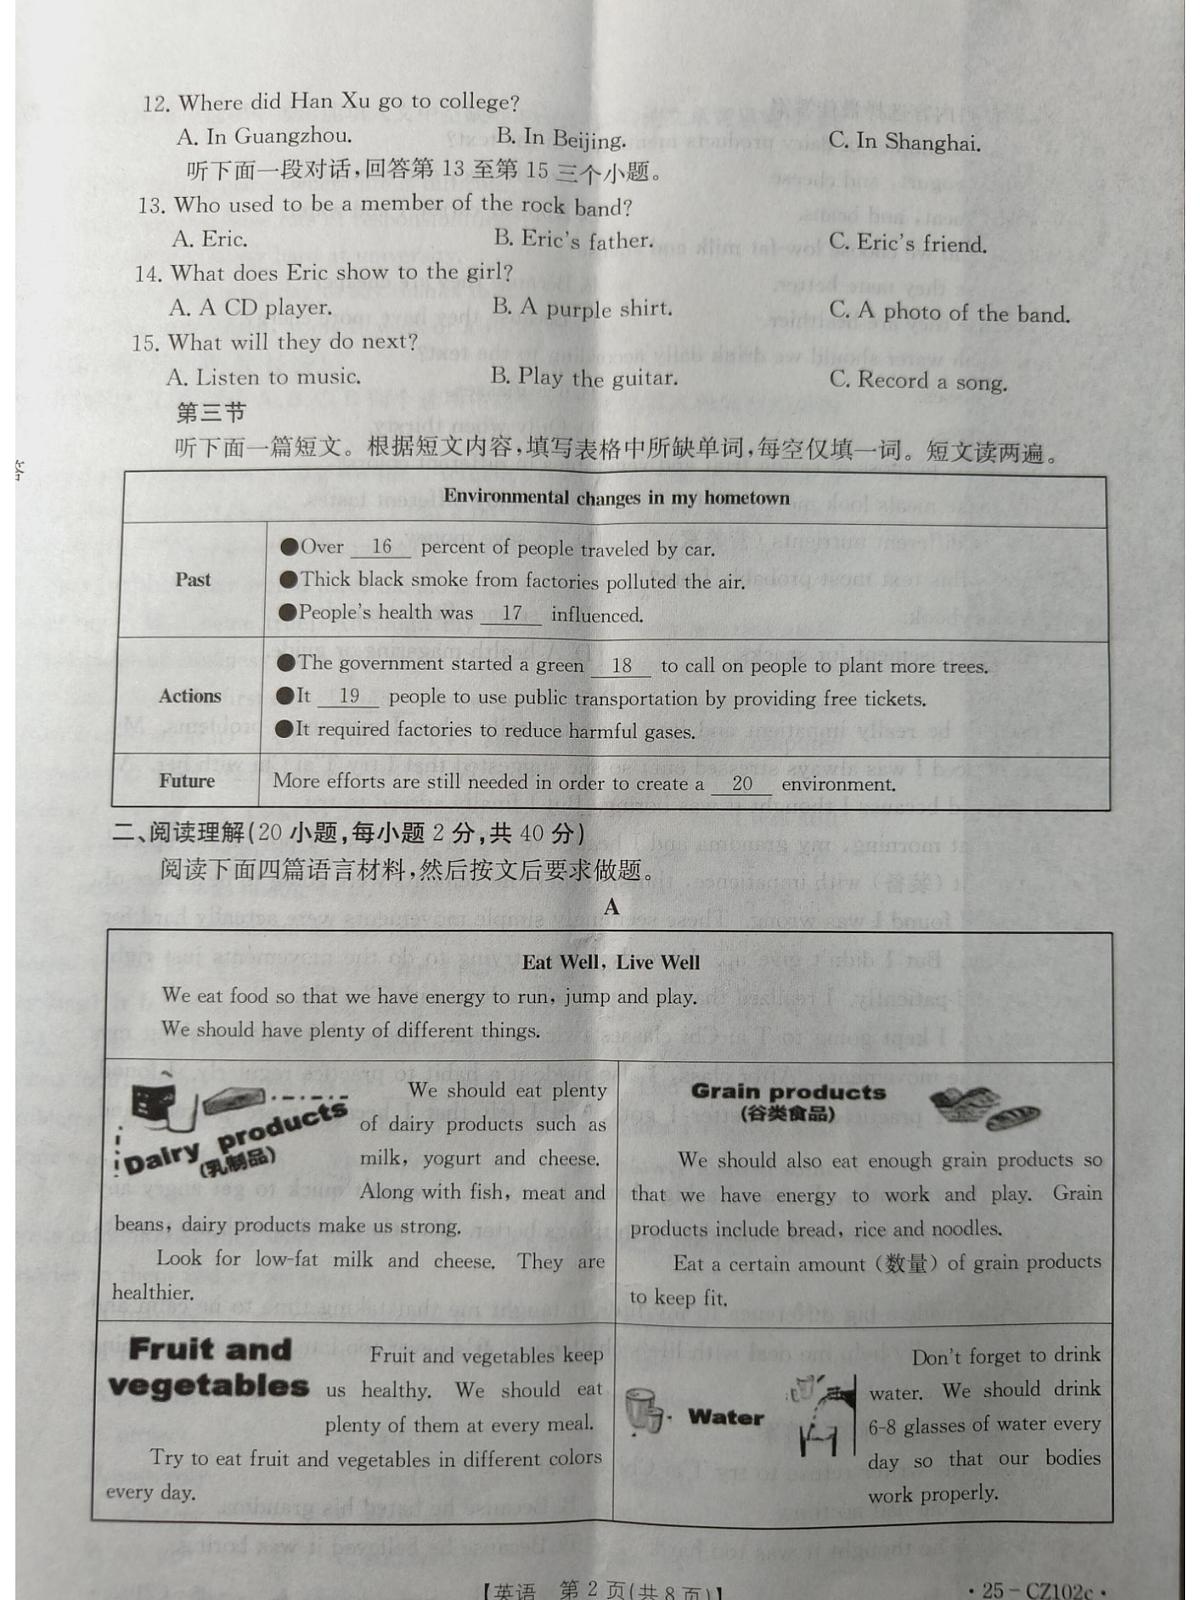 12. Where did Han Xu go to college?
A. In Guangzhou. B. In Beijing. C. In Shanghai.
听下面一段对话,回答第 13 至第 15 三个小题。
13. Who used to be a member of the rock band?
A. Eric. B. Eric's father. C. Eric's friend.
14. What does Eric show to the girl?
A. A CD player. B. A purple shirt. C. A photo of the band.
15. What will they do next?
A. Listen to music. B. Play the guitar. C. Record a song.
第三节
听下面一篇短文。根据短文内容,填写表格中所缺单词,每空仅填一词。短文读两遍。
Environmental changes in my hometown
Past
●Over 16 percent of people traveled by car.
●Thick black smoke from factories polluted the air.
●People's health was 17 influenced.
Actions
●The government started a green 18 to call on people to plant more trees.
●It 19 people to use public transportation by providing free tickets.
●It required factories to reduce harmful gases.
Future
More efforts are still needed in order to create a 20 environment.
二、阅读理解(20 小题,每小题 2 分,共 40 分)
阅读下面四篇语言材料,然后按文后要求做题。
A
Eat Well, Live Well
We eat food so that we have energy to run, jump and play.
We should have plenty of different things.
Dairy products
(乳制品)
We should eat plenty
of dairy products such as
milk, yogurt and cheese.
Along with fish, meat and
beans, dairy products make us strong.
Look for low-fat milk and cheese. They are
healthier.
Grain products
(谷类食品)
We should also eat enough grain products so
that we have energy to work and play. Grain
products include bread, rice and noodles.
Eat a certain amount (数量) of grain products
to keep fit.
Fruit and
vegetables
Fruit and vegetables keep
us healthy. We should eat
plenty of them at every meal.
Try to eat fruit and vegetables in different colors
every day.
Water
Don't forget to drink
water. We should drink
6-8 glasses of water every
day so that our bodies
work properly.
【英语 第 2 页(共 8 页)】
·25-CZ102c·